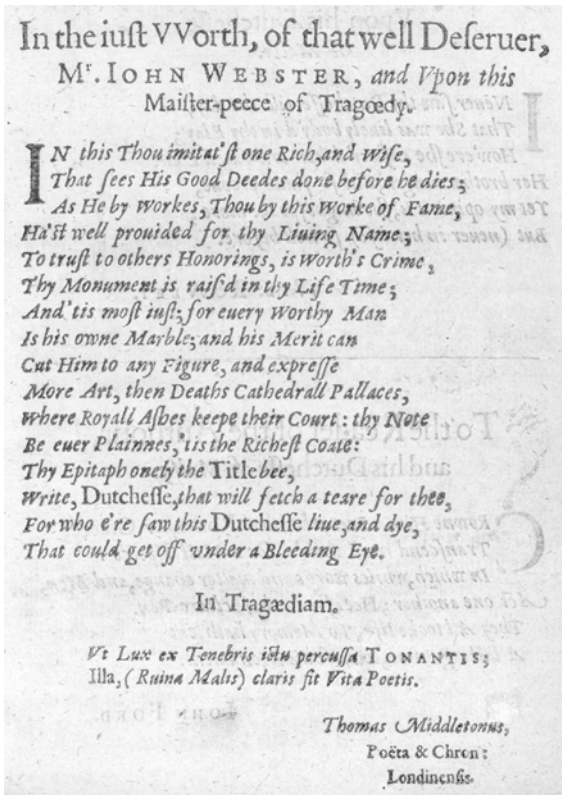 In the iuſt VVorth, of that well Deſeruer,
Mʳ. IOHN WEBSTER, and Vpon this
Maiſter-peece of Tragœdy.
IN this Thou imitat'ſt one Rich, and Wiſe,
That ſees His Good Deedes done before he dies;
As He by Workes, Thou by this Worke of Fame,
Ha'ſt well prouided for thy Liuing Name;
To truſt to others Honorings, is Worth's Crime,
Thy Monument is raiſ'd in thy Life Time;
And 'tis moſt iuſt; for euery Worthy Man
Is his owne Marble; and his Merit can
Cut Him to any Figure, and expreſſe
More Art, then Deaths Cathedrall Pallaces,
Where Royall Aſhes keepe their Court: thy Note
Be euer Plainnes, 'tis the Richeſt Coate:
Thy Epitaph onely the Title bee,
Write, Dutcheſſe, that will fetch a teare for thee,
For who e're ſaw this Dutcheſſe liue, and dye,
That could get off vnder a Bleeding Eye.
In Tragædiam.
Vt Lux ex Tenebris ictu percuſſa TONANTIS;
Illa, (Ruina Malis) claris fit Vita Poetis.
Thomas Middletonus,
Poëta & Chron:
Londinenſis.